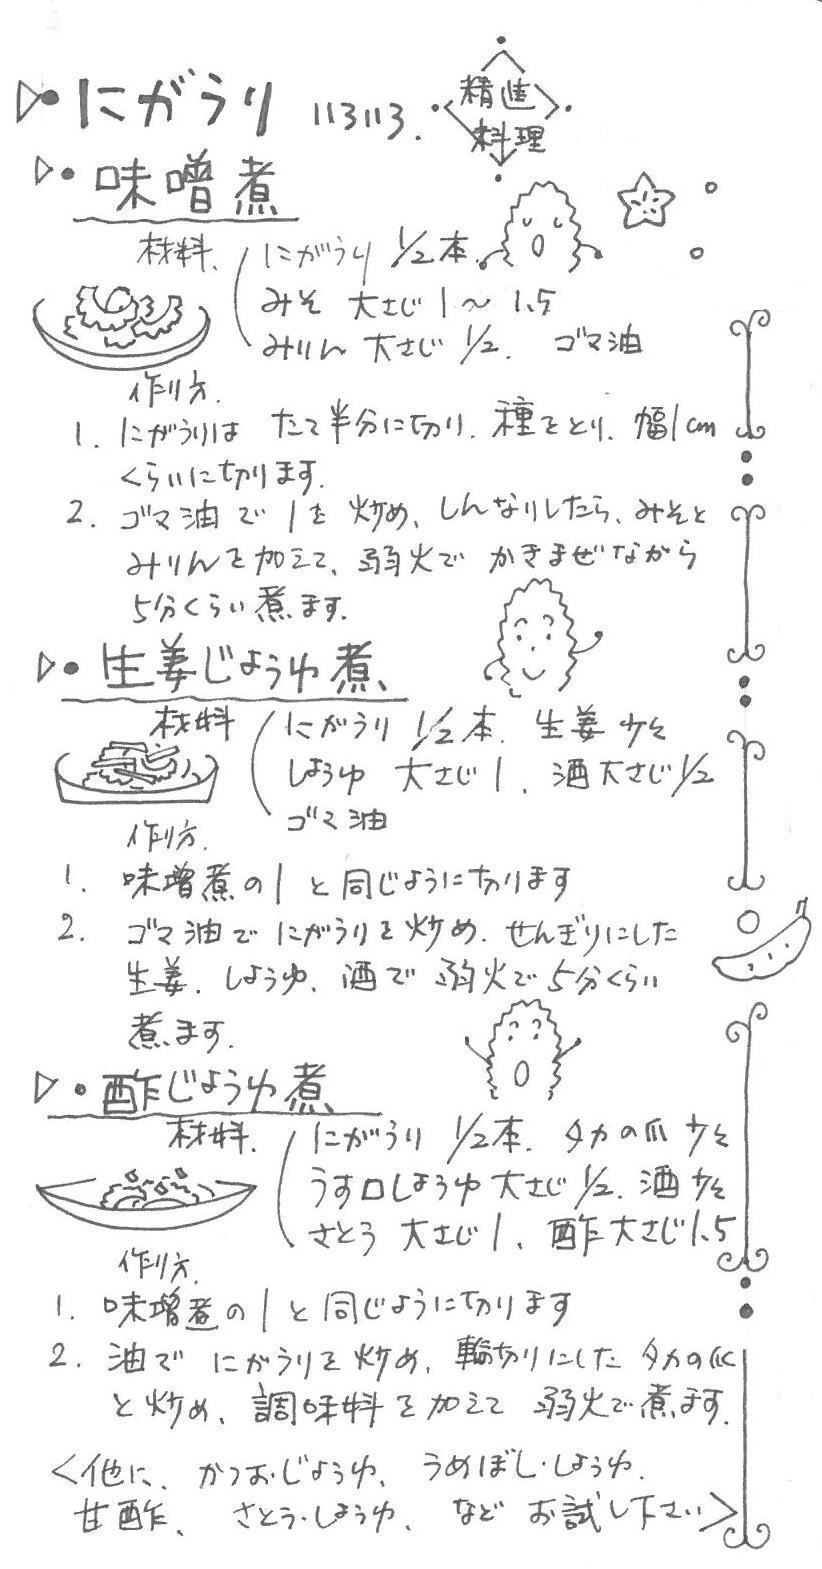 にがうり いろいろ.
精進
料理
味噌煮
材料. にがうり 1/2本.
みそ 大さじ 1～1.5
みりん 大さじ 1/2. ゴマ油
作り方.
1. にがうりは たて半分に切り. 種をとり. 幅1cm
くらいに切ります.
2. ゴマ油で 1を 炒め、しんなりしたら、みそと
みりんを加えて、弱火で かきまぜながら
5分くらい煮ます.
生姜じょうゆ煮
材料 にがうり 1/2本. 生姜 少々
しょうゆ 大さじ1. 酒大さじ1/2
ゴマ油
作り方.
1. 味噌煮の1と同じように切ります
2. ゴマ油で にがうりを 炒め. せんぎりにした
生姜. しょうゆ. 酒で 弱火で 5分くらい
煮ます.
酢じょうゆ煮
材料. にがうり 1/2本. タカの爪 少々
うす口しょうゆ 大さじ1/2. 酒少々
さとう 大さじ1、酢大さじ1.5
作り方.
1. 味噌煮の1と同じように切ります
2. 油で にがうりを 炒め. 輪切りにした タカの爪
と炒め、調味料を加えて 弱火で煮ます.
<他に、かつお・じょうゆ、うめぼし・しょうゆ.
甘酢、さとう・しょうゆ、など お試し下さい>